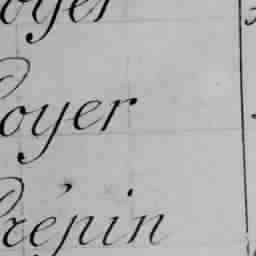 oyer
oyer
répin